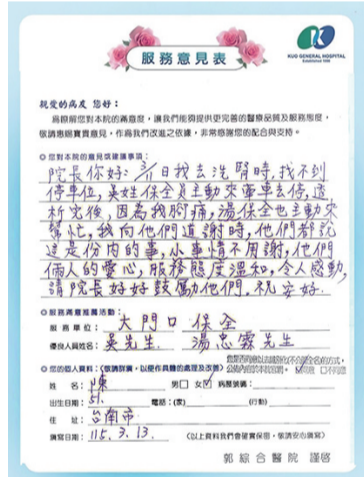 KUO GENERAL HOSPITAL
Established 1896
服務意見表
親愛的病友 您好：
為瞭解您對本院的滿意度，讓我們能夠提供更完善的醫療品質及服務態度，
敬請惠賜寶貴意見，作為我們改進之依據，非常感謝您的配合與支持。
您對本院的意見或建議事項：
院長你好：3/11日我去洗腎時，找不到
停車位，吳姓保全員主動來牽車去停，透
析完後，因為我腳痛，湯保全也主動來
幫忙，我向他們道謝時，他們都說
這是份內的事，小事情不用謝，他們
倆人的愛心，服務態度溫和，令人感動，
請院長好好鼓勵他們。祝 安好。
服務滿意推薦活動：
服務單位：大門口 保全
優良人員姓名：吳先生、湯忠霖先生
您的個人資料：（敬請詳填，以便作具體的處理及改善）
姓 名：陳 男□ 女☑ 病歷號碼：
出生日期：51. 電話：(家) (行動)
住 址：台南市
填寫日期：115. 3. 13. （以上資料我們會確實保密，敬請安心填寫）
郭綜合醫院 謹啓